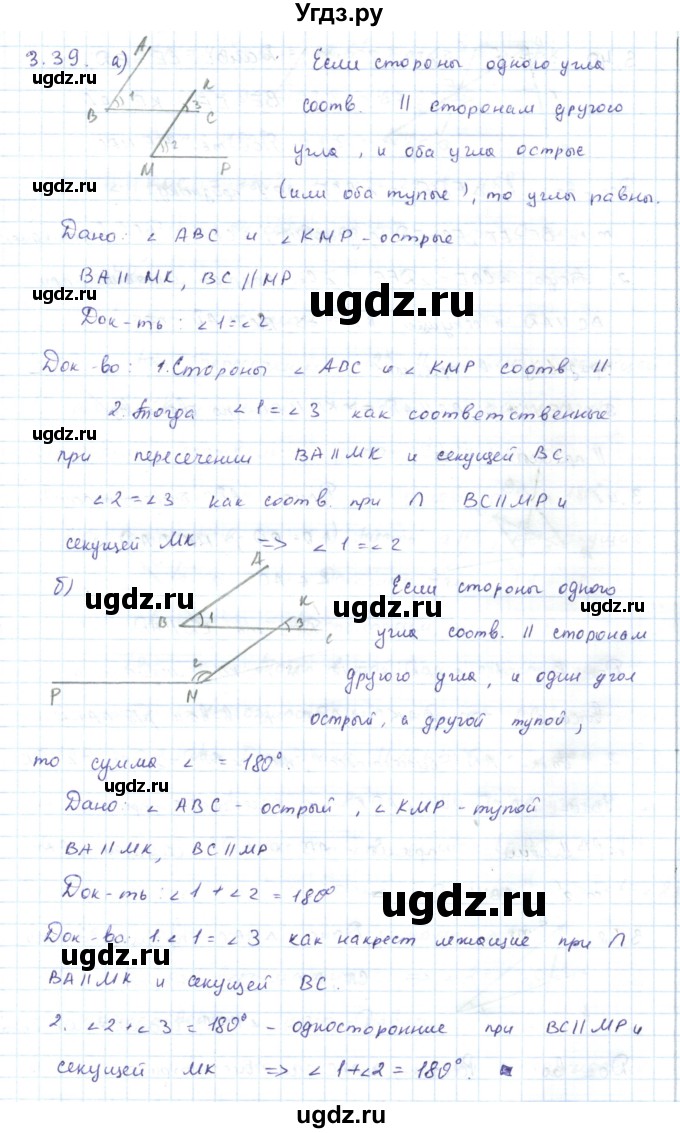 Угдз.ру
3.39. а) A Если стороны одного угла
K
B 1 3 C соотв. || сторонам другого
2 угла, и оба угла острые
M P
(или оба тупые), то углы равны.
Дано: ∠ ABC и ∠ KMP - острые
BA || MK, BC || MP
Док-ть: ∠1=∠2
Док-во: 1. Стороны ∠ ADC и ∠ KMP соотв. ||
2. Тогда ∠1=∠3 как соответственные
при пересечении BA || MK и секущей BC.
∠2=∠3 как соотв. при ∩ BC || MP и
секущей MK => ∠1=∠2
A
б) K Если стороны одного
B 1 3 C угла соотв. || сторонам
2 другого угла, и один угол
P M
острый, а другой тупой,
то сумма ∠ = 180°.
Дано: ∠ ABC - острый, ∠ KMP - тупой
BA || MK, BC || MP
Док-ть: ∠1+∠2=180°
Док-во: 1. ∠1=∠3 как накрест лежащие при ∩
BA || MK и секущей BC.
2. ∠2+∠3=180° - односторонние при BC || MP и
секущей MK => ∠1+∠2=180°.
ugdz.ru
ugdz.ru
ugdz.ru
ugdz.ru
ugdz.ru
ugdz.ru
ugdz.ru
ugdz.ru
ugdz.ru
ugdz.ru
ugdz.ru
ugdz.ru
ugdz.ru
ugdz.ru